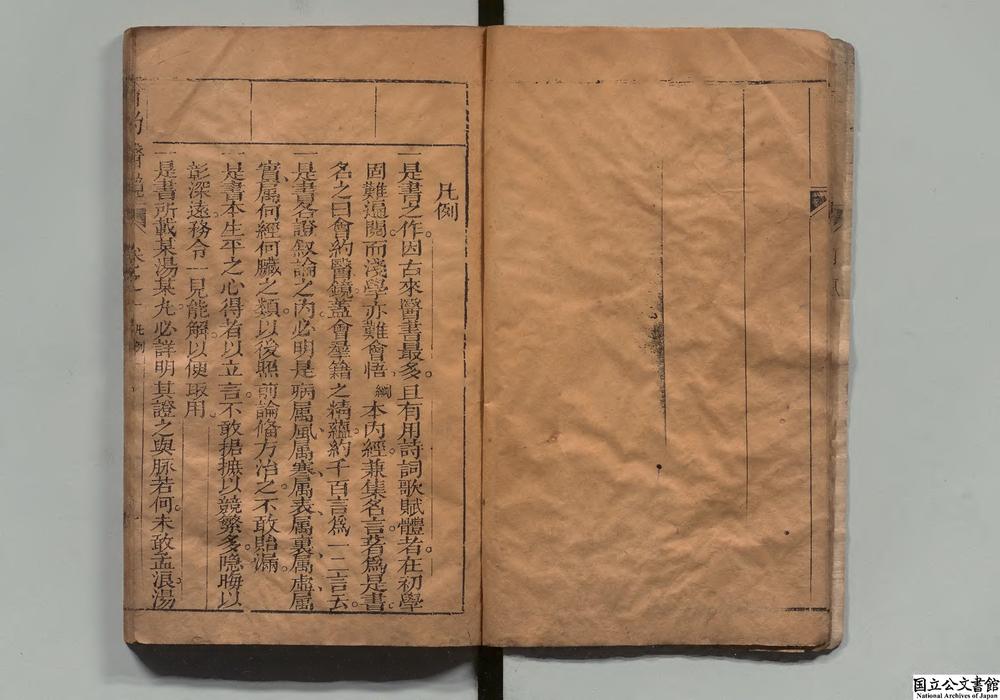 凡例
一是書之作因古來醫書最多且有用詩詞歌賦體者在初學
固難遍閱而淺學亦難會悟綱本內經兼集名言著爲是書
名之曰會約醫鏡蓋會羣籍之精蘊約千百言爲一二言云
一是書各證敘論之內必明是病属風属寒属表属裏属虛属
實属何經何臟之類以後照前論脩方治之不敢貽漏
一是書本生平之心得者以立言不敢摭摭以競繁多隱晦以
彰深遠務令一見能解以便取用
一是書所載某湯某丸必詳明其證之與脉若何未敢孟浪湯
約醫鏡
卷之一
凡例
国立公文書館
National Archives of Japan